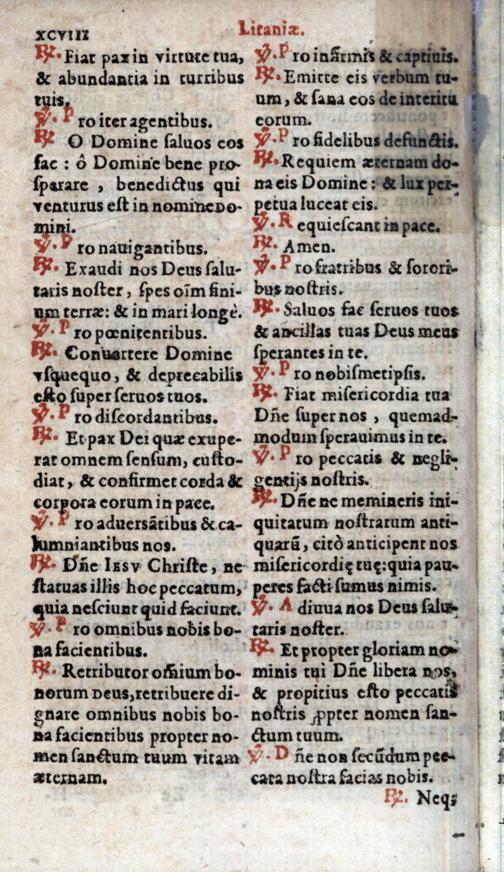 XCVIII
Litaniæ.
℟. Fiat pax in virtute tua,
& abundantia in turribus
tuis.
℣. Pro iter agentibus.
℟. O Domine saluos eos
fac : ô Domine bene pro-
sperare , benedictus qui
venturus est in nomine Do-
mini.
℣. Pro nauigantibus.
℟. Exaudi nos Deus salu-
taris noster, spes oīm fini-
um terræ: & in mari longè.
℣. Pro pœnitentibus.
℟. Conuertere Domine
vsquequo, & deprecabilis
esto super seruos tuos.
℣. Pro discordantibus.
℟. Et pax Dei quæ exupe-
rat omnem sensum, custo-
diat, & confirmet corda &
corpora eorum in pace.
℣. Pro aduersātibus & ca-
lumniantibus nos.
℟. Dñe IESV Christe, ne
statuas illis hoc peccatum,
quia nesciunt quid faciunt.
℣. Pro omnibus nobis bo-
na facientibus.
℟. Retributor omnium bo-
norum Deus, retribuere di-
gnare omnibus nobis bo-
na facientibus propter no-
men sanctum tuum vitam
æternam.
℣. Pro infirmis & captiuis.
℟. Emitte eis verbum tu-
um, & sana eos de interitu
eorum.
℣. Pro fidelibus defunctis.
℟. Requiem æternam do-
na eis Domine : & lux per-
petua luceat eis.
℣. Requiescant in pace.
℟. Amen.
℣. Pro fratribus & sorori-
bus nostris.
℟. Saluos fac seruos tuos
& ancillas tuas Deus meus
sperantes in te.
℣. Pro nobismetipsis.
℟. Fiat misericordia tua
Dñe super nos , quemad-
modum sperauimus in te.
℣. Pro peccatis & negli-
gentijs nostris.
℟. Dñe ne memineris ini-
quitatum nostrarum anti-
quarū, citò anticipent nos
misericordię tuę: quia pau-
peres facti sumus nimis.
℣. Adiuua nos Deus salu-
taris noster.
℟. Et propter gloriam no-
minis tui Dñe libera nos,
& propitius esto peccatis
nostris ꝓpter nomen san-
ctum tuum.
℣. Dñe non secūdum pec-
cata nostra facias nobis.
℟. Neqꝫ